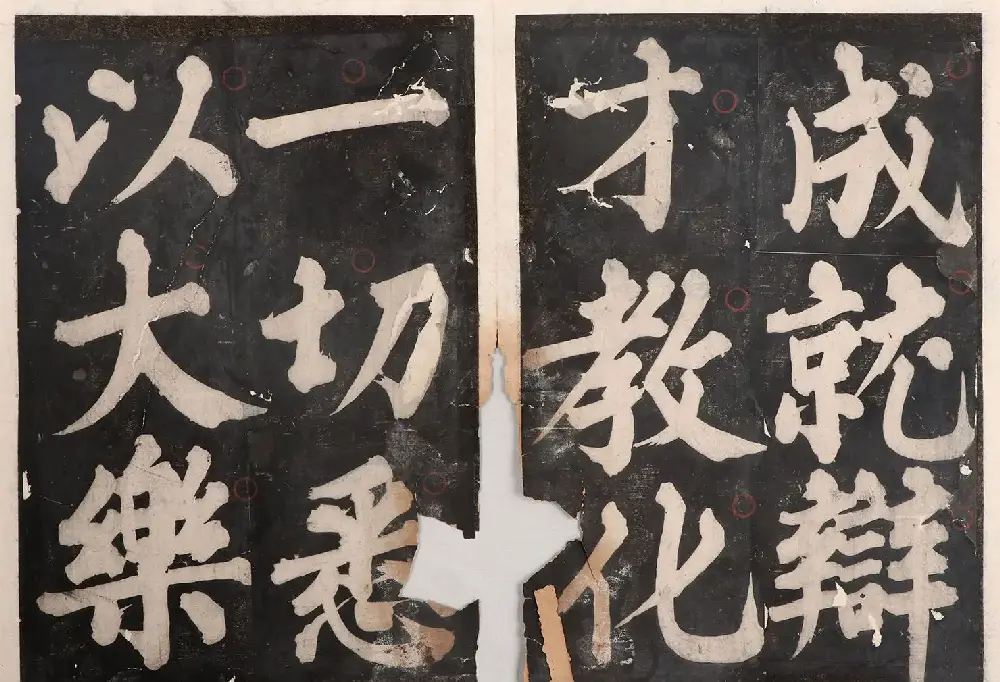 成就辯
才教化
一切悉
以大樂